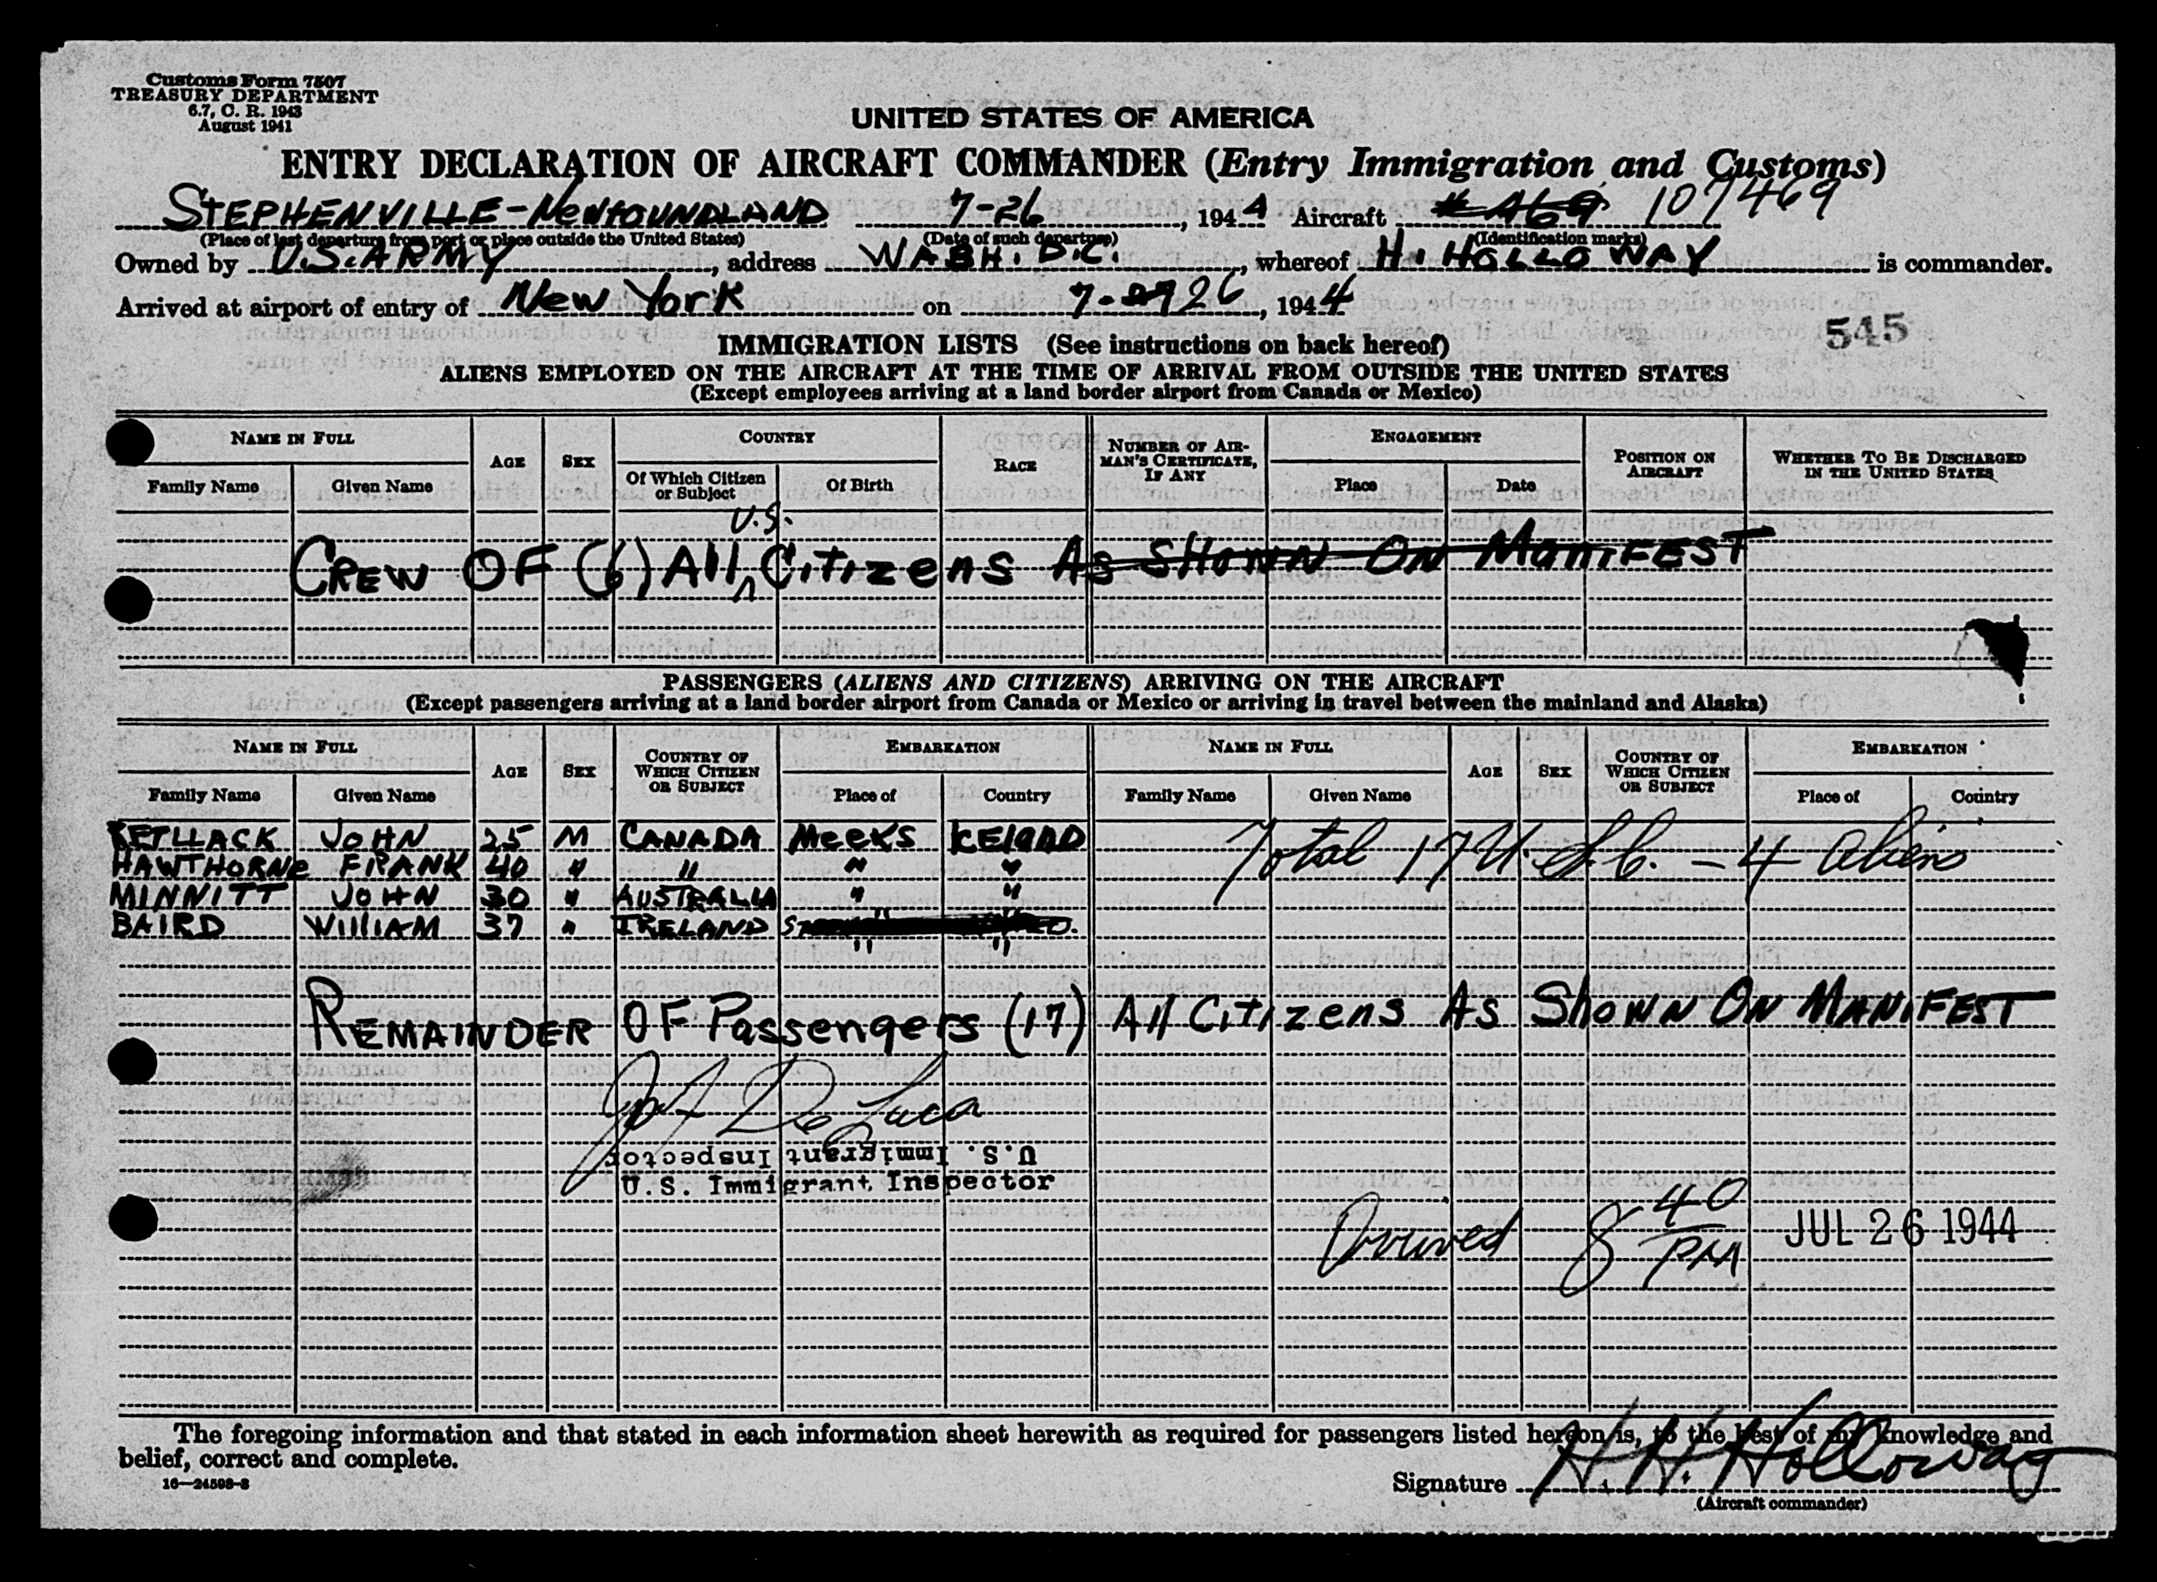 Customs Form 7507
TREASURY DEPARTMENT
6.7, C. R. 1943
August 1941
UNITED STATES OF AMERICA
ENTRY DECLARATION OF AIRCRAFT COMMANDER (Entry Immigration and Customs)
STEPHENVILLE-NEWFOUNDLAND 7-26, 1944 Aircraft 469 107469
(Place of last departure from port or place outside the United States) (Date of such departure) (Identification marks)
Owned by U.S. ARMY, address WASH. D.C., whereof H. HOLLOWAY is commander.
Arrived at airport of entry of New York on 7-26, 1944
545
IMMIGRATION LISTS (See instructions on back hereof)
ALIENS EMPLOYED ON THE AIRCRAFT AT THE TIME OF ARRIVAL FROM OUTSIDE THE UNITED STATES
(Except employees arriving at a land border airport from Canada or Mexico)
NAME IN FULL AGE SEX COUNTRY RACE NUMBER OF AIRMAN'S CERTIFICATE, IF ANY ENGAGEMENT POSITION ON AIRCRAFT WHETHER TO BE DISCHARGED IN THE UNITED STATES
Family Name Given Name Of Which Citizen or Subject Of Birth Place Date
U.S.
CREW OF (6) All Citizens As SHOWN ON MANIFEST
PASSENGERS (ALIENS AND CITIZENS) ARRIVING ON THE AIRCRAFT
(Except passengers arriving at a land border airport from Canada or Mexico or arriving in travel between the mainland and Alaska)
NAME IN FULL AGE SEX COUNTRY OF WHICH CITIZEN OR SUBJECT EMBARKATION NAME IN FULL AGE SEX COUNTRY OF WHICH CITIZEN OR SUBJECT EMBARKATION
Family Name Given Name Place of Country Family Name Given Name Place of Country
RETLLACK JOHN 25 M CANADA MEEKS ICELAND
Total 17 U.S.C. - 4 Aliens
HAWTHORNE FRANK 40 " " " "
MINNITT JOHN 30 " AUSTRALIA " "
BAIRD WILLIAM 37 " IRELAND " "
REMAINDER OF Passengers (17) All Citizens As Shown On MANIFEST
De Luca
U.S. Immigrant Inspector
U.S. Immigrant Inspector
Arrived 8 40 PM JUL 26 1944
The foregoing information and that stated in each information sheet herewith as required for passengers listed hereon is, to the best of my knowledge and
belief, correct and complete.
16—24508-2
Signature H. H. Holloway
(Aircraft commander)